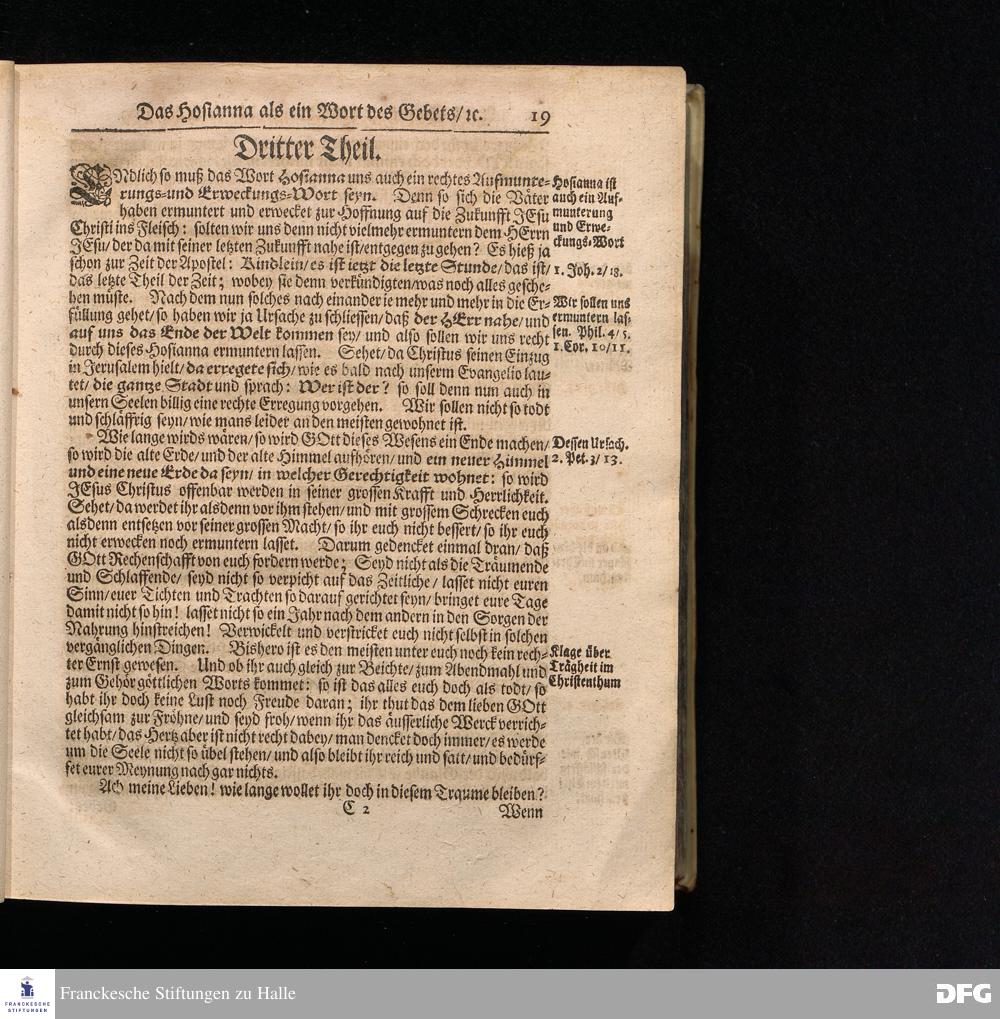 Das Hosianna als ein Wort des Gebets/ ꝛc. 19
Dritter Theil.
ENdlich so muß das Wort Hosianna uns auch ein rechtes Aufmunte-
rungs-und Erweckungs-Wort seyn. Denn so sich die Väter
haben ermuntert und erwecket zur Hoffnung auf die Zukunfft JEsu
Christi ins Fleisch: solten wir uns denn nicht vielmehr ermuntern dem HErrn
JEsu/ der da mit seiner letzten Zukunfft nahe ist/ entgegen zu gehen? Es hieß ja
schon zur Zeit der Apostel: Kindlein/ es ist ietzt die letzte Stunde/ das ist/
das letzte Theil der Zeit; wobey sie denn verkündigten/ was noch alles gesche-
hen müste. Nach dem nun solches nach einander ie mehr und mehr in die Er-
füllung gehet/ so haben wir ja Ursache zu schliessen/ daß der HErr nahe/ und
auf uns das Ende der Welt kommen sey/ und also sollen wir uns recht
durch dieses Hosianna ermuntern lassen. Sehet/ da Christus seinen Einzug
in Jerusalem hielt/ da erregete sich/ wie es bald nach unserm Evangelio lau-
tet/ die gantze Stadt und sprach: Wer ist der? so soll denn nun auch in
unsern Seelen billig eine rechte Erregung vorgehen. Wir sollen nicht so todt
und schläffrig seyn/ wie mans leider an den meisten gewohnet ist.
Wie lange wirds wären/ so wird GOtt dieses Wesens ein Ende machen/
so wird die alte Erde/ und der alte Himmel aufhören/ und ein neuer Himmel
und eine neue Erde da seyn/ in welcher Gerechtigkeit wohnet: so wird
JEsus Christus offenbar werden in seiner grossen Krafft und Herrlichkeit.
Sehet/ da werdet ihr alsdenn vor ihm stehen/ und mit grossem Schrecken euch
alsdenn entsetzen vor seiner grossen Macht/ so ihr euch nicht bessert/ so ihr euch
nicht erwecken noch ermuntern lasset. Darum gedencket einmal dran/ daß
GOtt Rechenschafft von euch fordern werde; Seyd nicht als die Träumende
und Schlaffende/ seyd nicht so verpicht auf das Zeitliche/ lasset nicht euren
Sinn/ euer Tichten und Trachten so darauf gerichtet seyn/ bringet eure Tage
damit nicht so hin! lasset nicht so ein Jahr nach dem andern in den Sorgen der
Nahrung hinstreichen! Verwickelt und verstricket euch nicht selbst in solchen
vergänglichen Dingen. Bishero ist es den meisten unter euch noch kein rech-
ter Ernst gewesen. Und ob ihr auch gleich zur Beichte/ zum Abendmahl und
zum Gehör göttlichen Worts kommet: so ist das alles euch doch als todt/ so
habt ihr doch keine Lust noch Freude daran; ihr thut das dem lieben GOtt
gleichsam zur Fröhne/ und seyd froh/ wenn ihr das äusserliche Werck verrich-
tet habt/ das Hertz aber ist nicht recht dabey/ man dencket doch immer/ es werde
um die Seele nicht so übel stehen/ und also bleibt ihr reich und satt/ und bedürf-
fet eurer Meynung nach gar nichts.
Ach meine Lieben! wie lange wollet ihr doch in diesem Traume bleiben?
C 2 Wenn
Hosianna ist
auch ein Auf-
munterung
und Erwe-
ckungs-Wort
1. Joh. 2/ 18.
Wir sollen uns
ermuntern las-
sen. Phil. 4/ 5.
1. Cor. 10/ 11.
Dessen Ursach.
2. Pet. 3/ 13.
Klage über
Trägheit im
Christenthum
FRANCKESCHE
STIFTUNGEN
Franckesche Stiftungen zu Halle
DFG